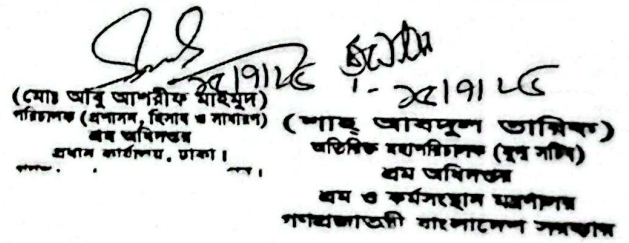 ২৫/৭/২৫
(মোঃ আবু আশরীফ মাহমুদ)
পরিচালক (প্রশাসন, হিসাব ও সাধারণ)
শ্রম অধিদপ্তর
প্রধান কার্যালয়, ঢাকা।
২৫/৭/২৫
(শাহ্ আবদুল তারিক)
অতিরিক্ত মহাপরিচালক (যুগ্ম সচিব)
শ্রম অধিদপ্তর
শ্রম ও কর্মসংস্থান মন্ত্রণালয়
গণপ্রজাতন্ত্রী বাংলাদেশ সরকার